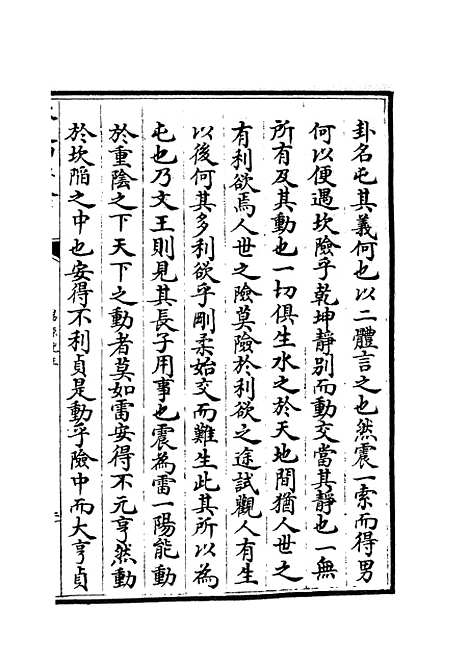 卦名屯其義何也以二體言之也然震一索而得男
何以便遇坎險乎乾坤靜別而動交當其靜也一無
所有及其動也一切俱生水之於天地間猶人世之
有利欲焉人世之險莫險於利欲之途試觀人有生
以後何其多利欲乎剛柔始交而難生此其所以為
屯也乃文王則見其長子用事也震為雷一陽能動
於重陰之下天下之動者莫如雷安得不元亨然動
於坎陷之中也安得不利貞是動乎險中而大亨貞